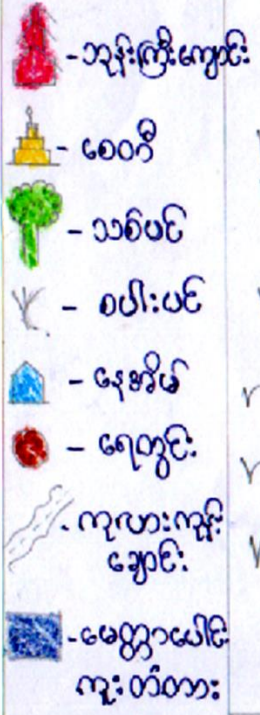 -ဘုန်းကြီးကျောင်း
- စေတီ
- သစ်ပင်
- စပါးပင်
- နေအိမ်
- ရေတွင်း
- ကုလားကုန်း
ချောင်း
-မေတ္တာပေါင်း
ကူးတံတား